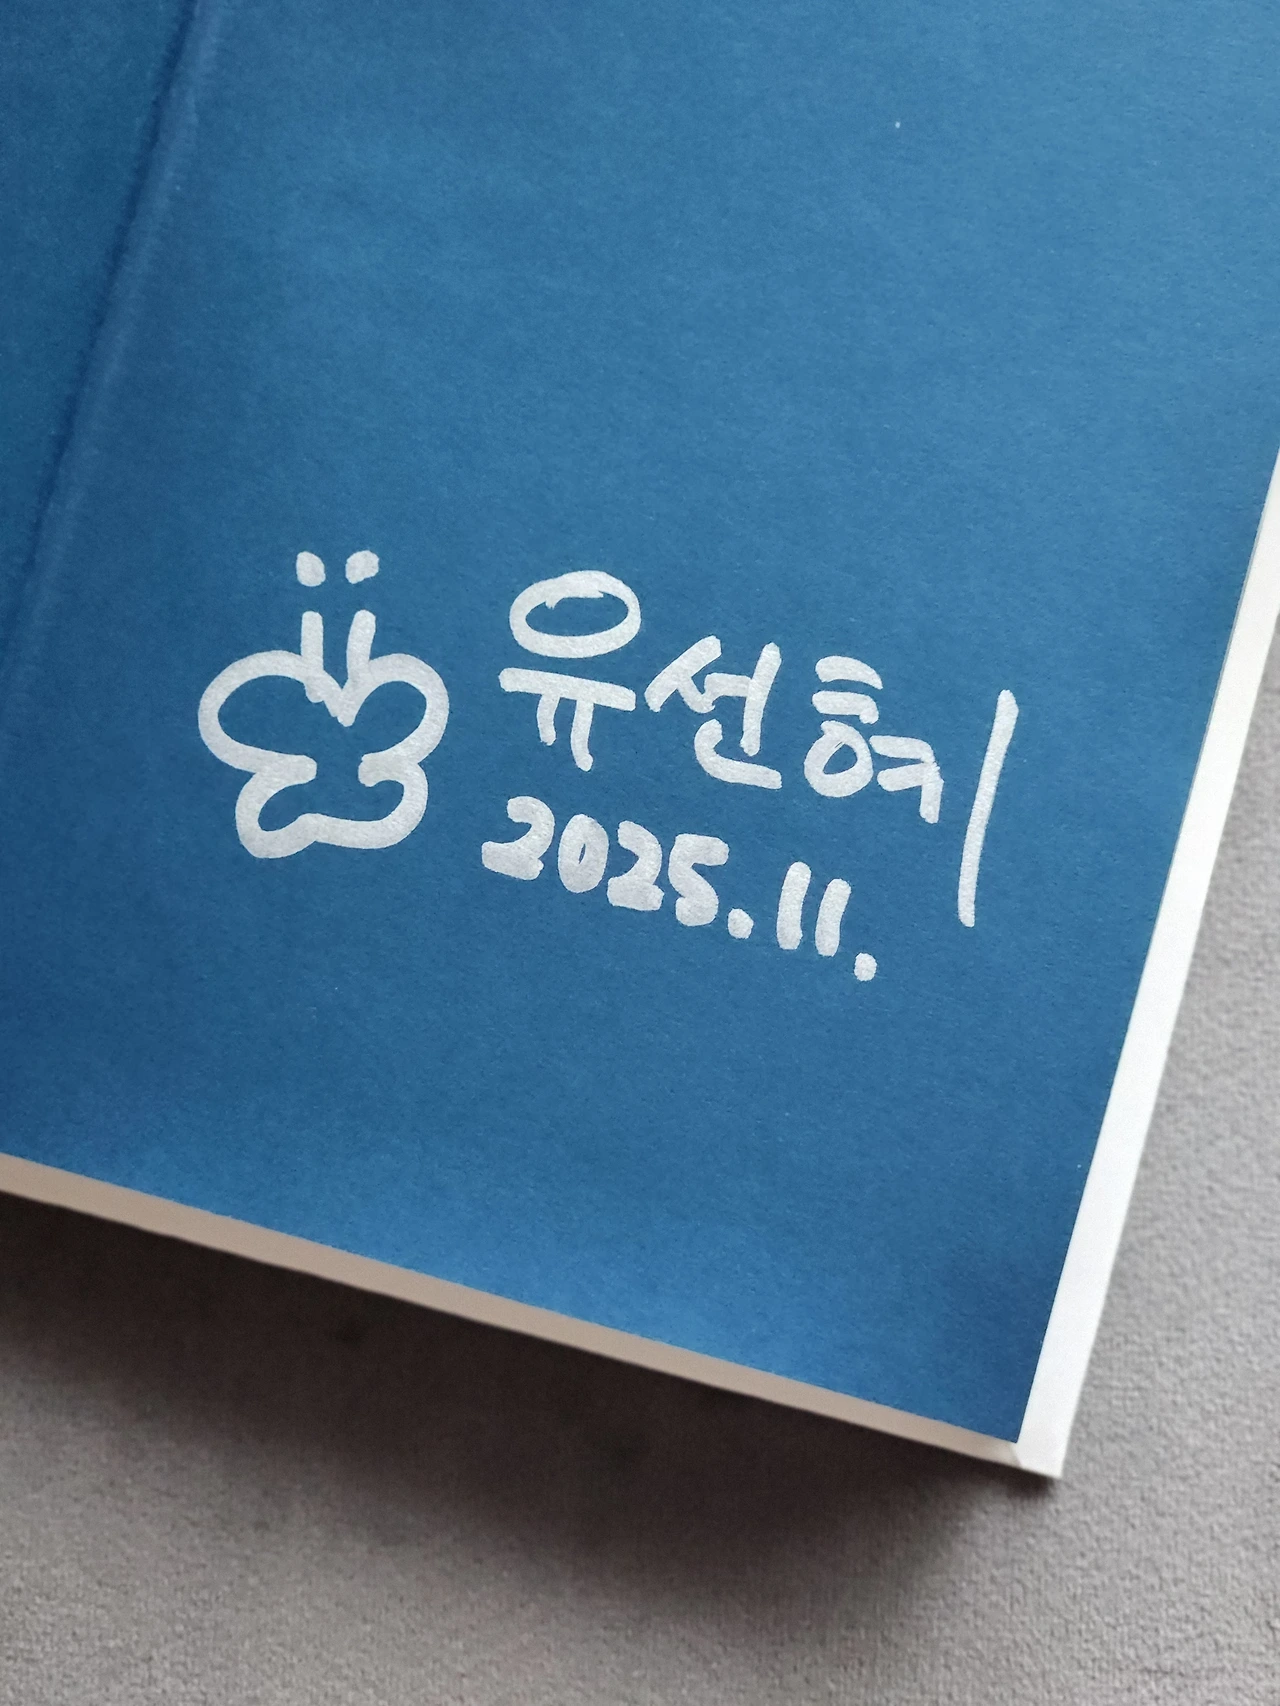 유선혜
2025.11.